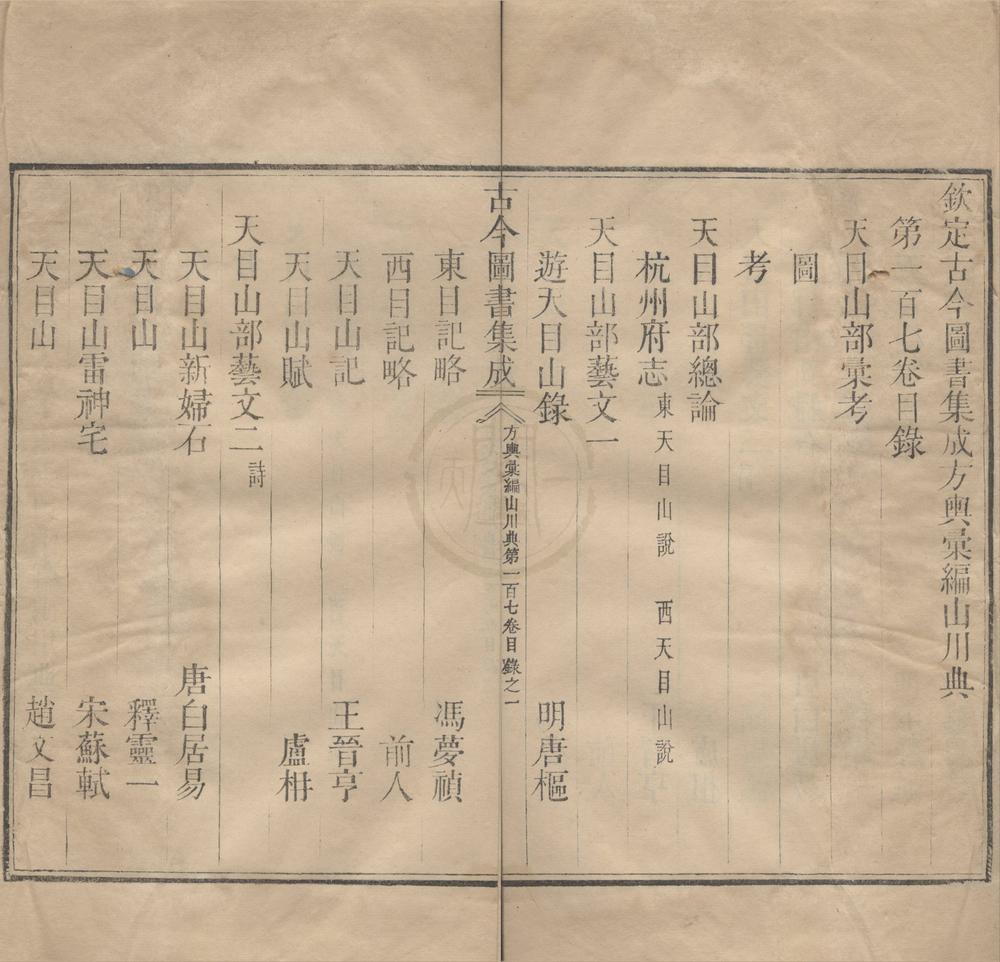 欽定古今圖書集成方輿彙編山川典
第一百七卷目錄
天目山部彙考
圖
考
天目山部總論
杭州府志 東天目山說 西天目山說
天目山部藝文一
遊天目山錄 明唐樞
古今圖書集成 方輿彙編山川典第一百七卷目錄之一
東目記略 馮夢禎
西目記略 前人
天目山記 王晉亨
天目山賦 盧枏
天目山部藝文二 詩
天目山新婦石 唐白居易
天目山 釋靈一
天目山雷神宅 宋蘇軾
天目山 趙文昌